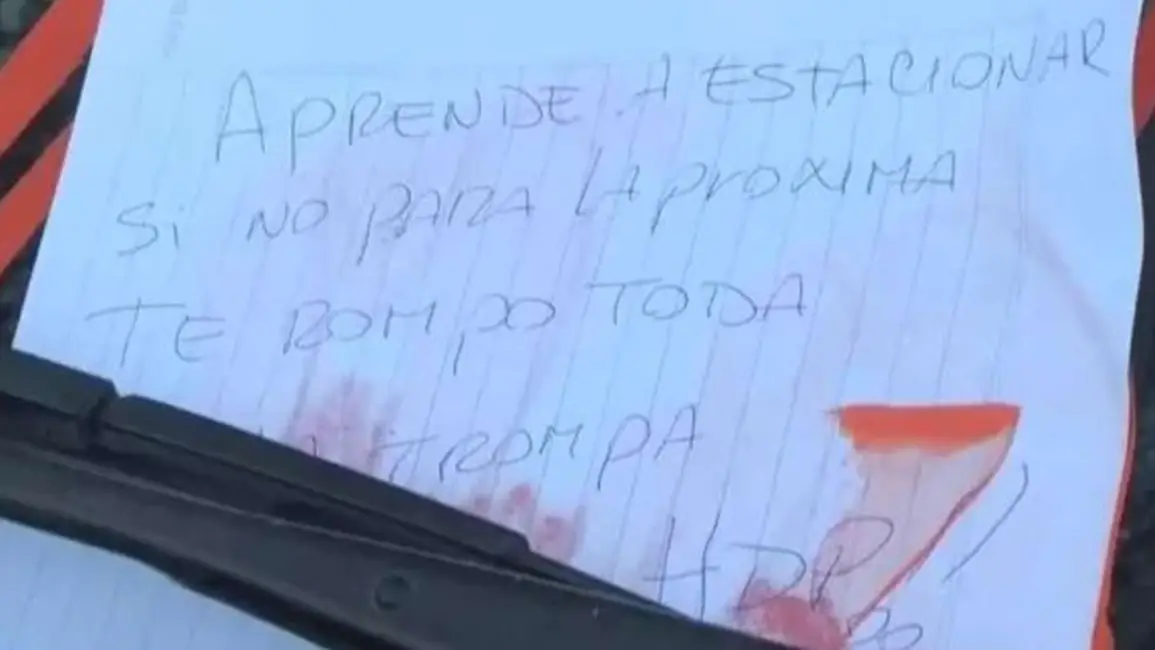 APRENDE A ESTACIONAR
Si NO PARA LA PrOXiMA
TE ROMPO TODA
LA TROMPA
HDP